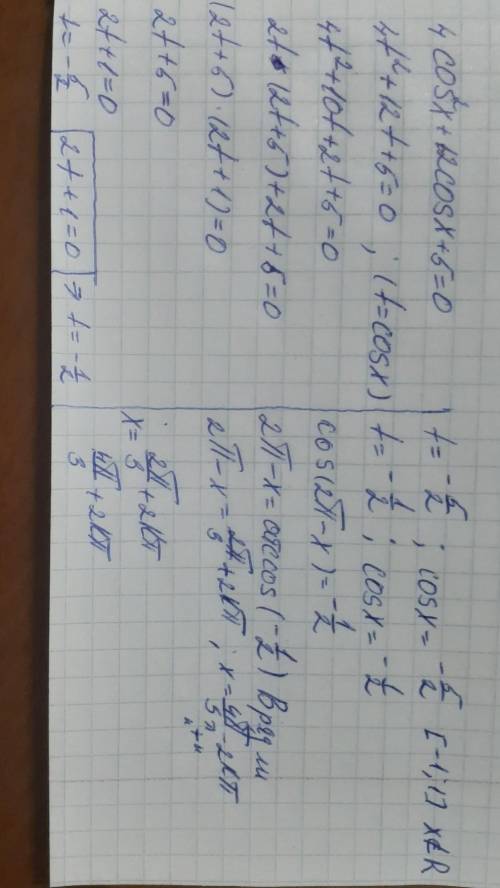 4 cos²x + 12cosx + 5 = 0
4t² + 12t + 5 = 0 ; (t = cosx)
4t² + 10t + 2t + 5 = 0
2t · (2t + 5) + 2t + 5 = 0
(2t + 5) · (2t + 1) = 0
2t + 5 = 0
2t + 1 = 0
t = -5/2
2t + 1 = 0 ⇒ t = -1/2
t = -5/2 ; cosx = -5/2 [-1; 1] x∉R
t = -1/2 ; cosx = -1/2
cos(2π - x) = -1/2
2π - x = arccos(-1/2) Вряд ли
2π - x = 2π/3 + 2kπ ; x = 4π/3 - 2kπ
x = 2π/3 + 2kπ
4π/3 + 2kπ